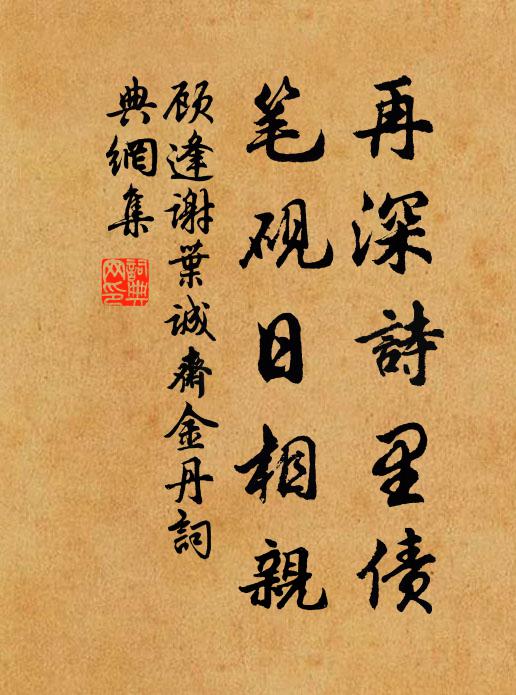 再深詩里债
笔砚日相親
顾逢谢葉诚齋金丹詞
典網集
詞典网印